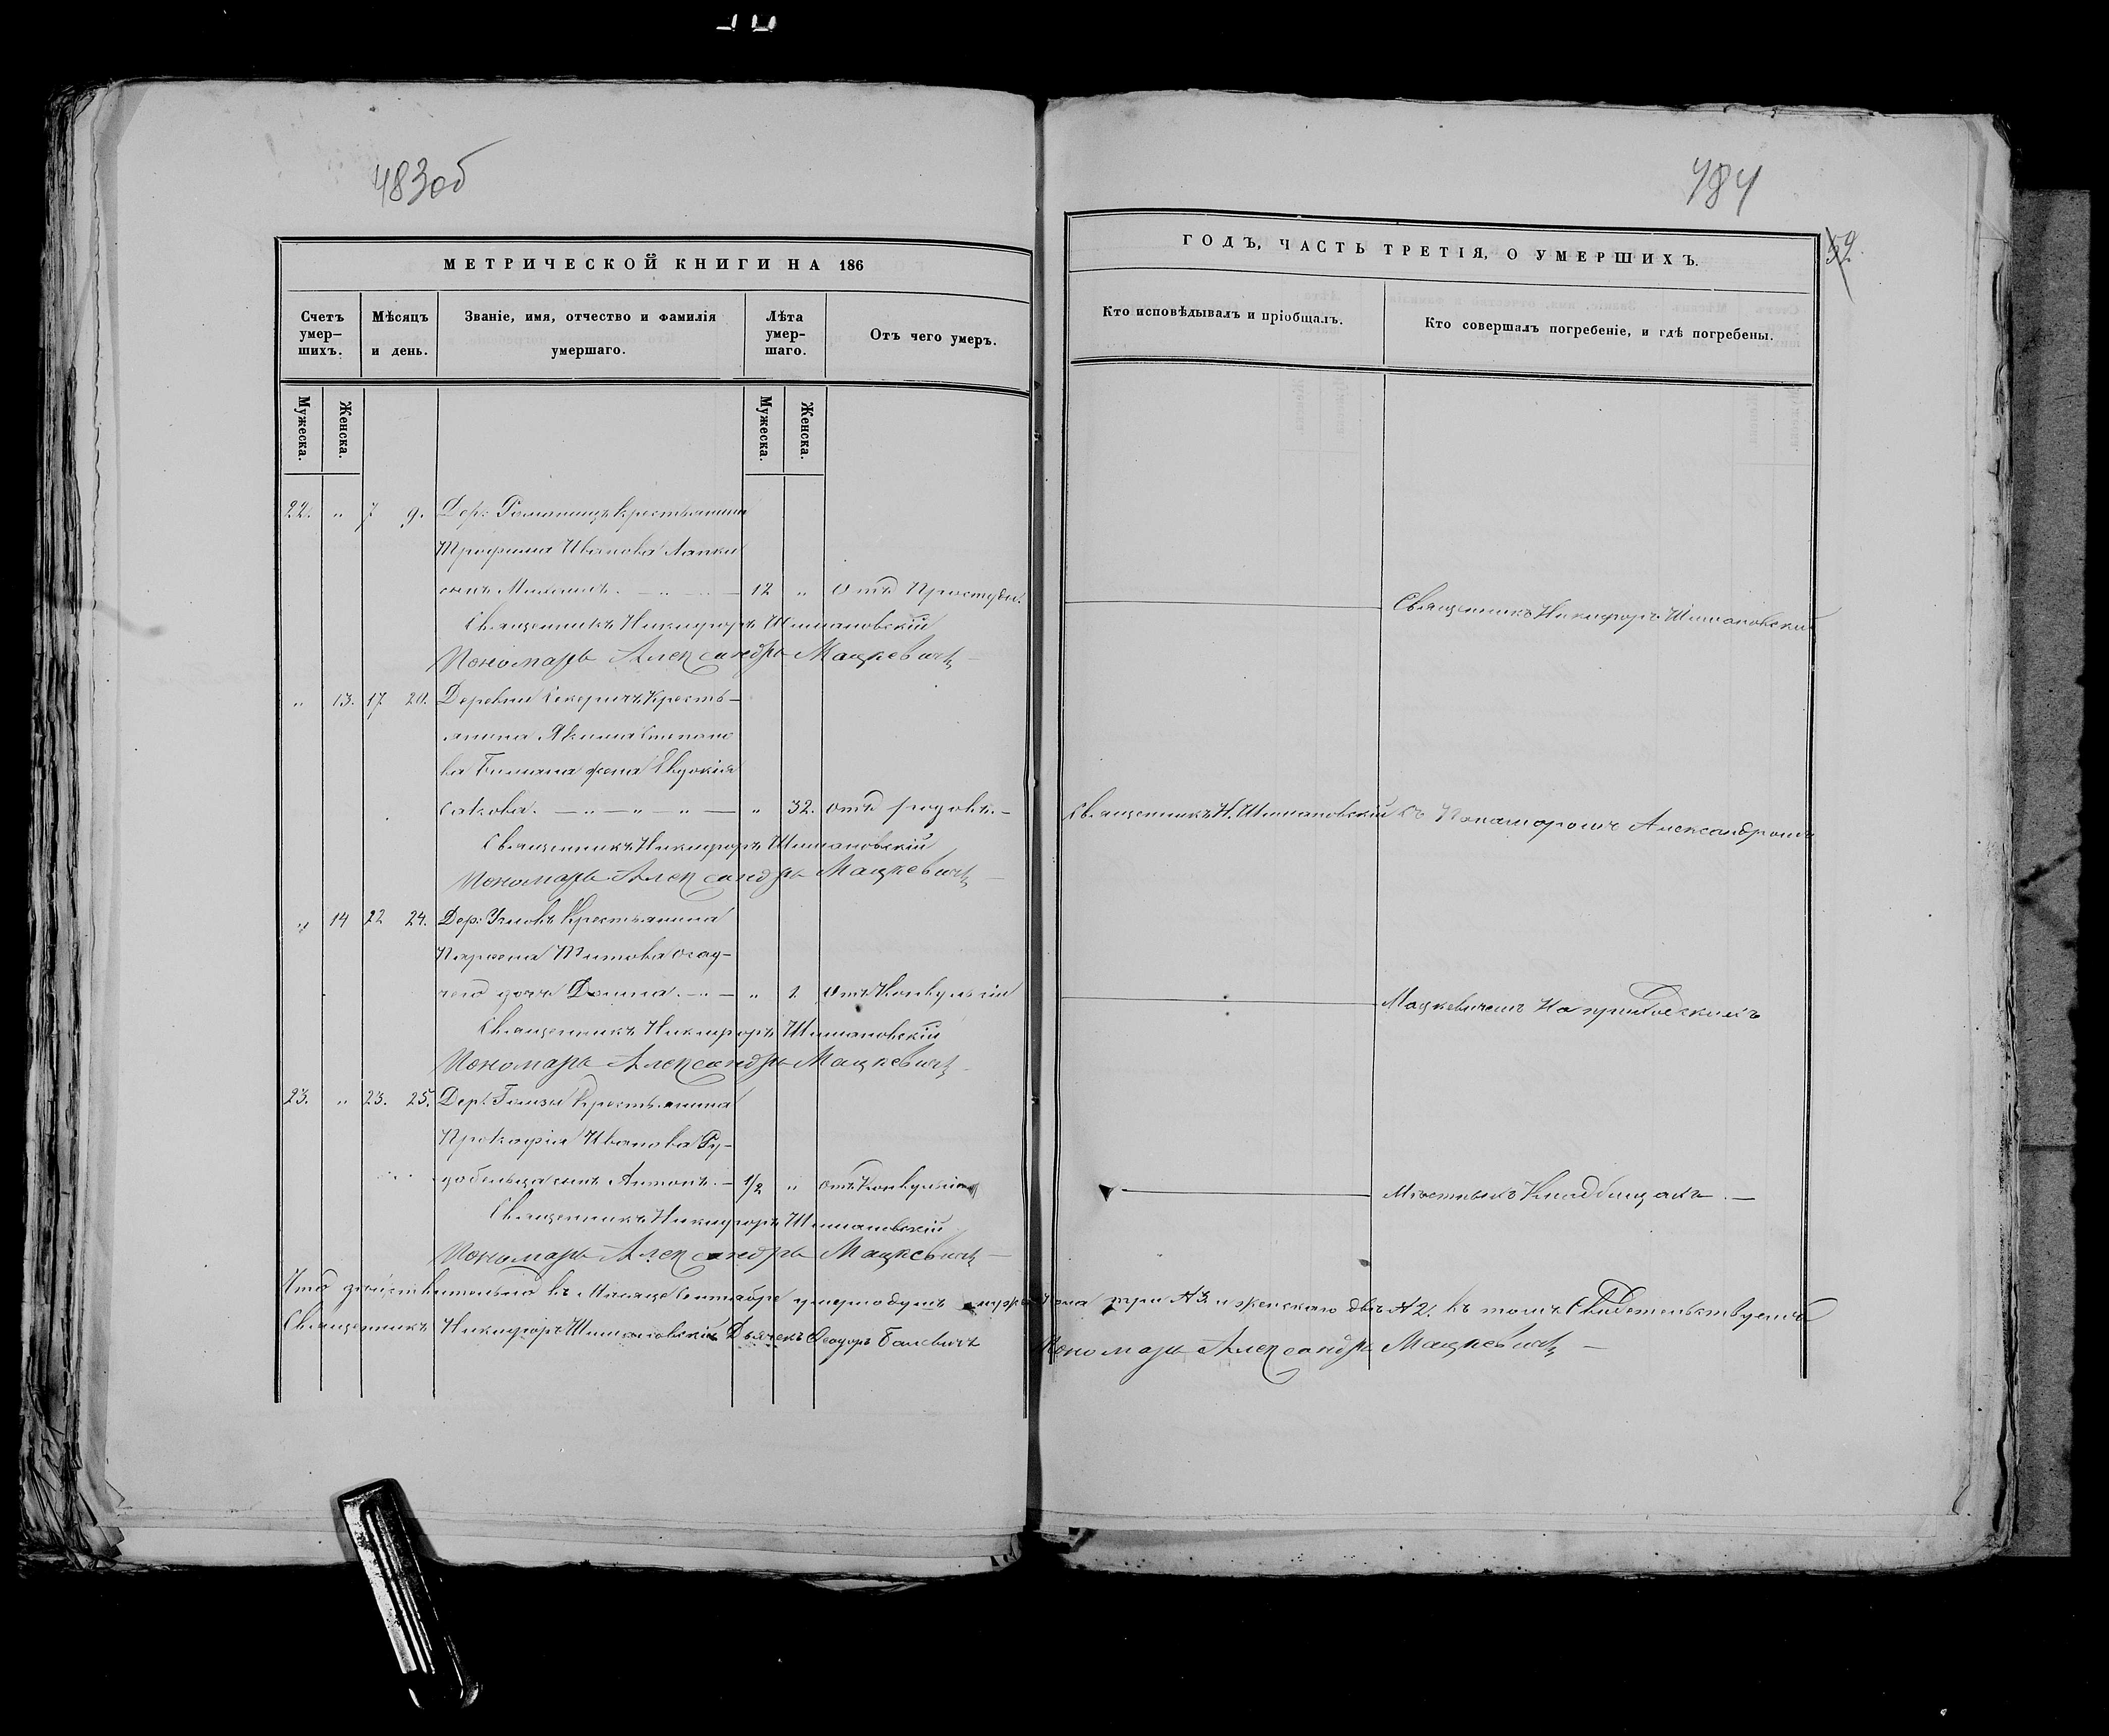 483об
484
52.
МЕТРИЧЕСКОЙ КНИГИ НА 186
Счетъ умер-шихъ.
Мѣсяцъ и день.
Званіе, имя, отчество и фамилія умершаго.
Лѣта умер-шаго.
Отъ чего умеръ.
Мужеска.
Женска.
Мужеска.
Женска.
22. " 7 9. Дер: Романищъ крестьянина
Трофима Иванова Лапки
сынъ 12 " отъ Простуды.
Священникъ Никифоръ Шимановскій
Пономарь Александръ Мацкевичъ
" 13. 17 20. Деревни Секеричъ Кресть-
янина Якима Степано
ва жена Евдокія
Сакова. " 32. отъ родовъ.
Священникъ Никифоръ Шимановскій
Пономарь Александръ Мацкевичъ
" 14 22 24. Дер: Крестьянина
Парфена Титова
дочь Домна. " 1. отъ Конвульсіи
Священникъ Никифоръ Шимановскій
Пономарь Александръ Мацкевичъ
23. " 23. 25. Дер: Крестьянина
Прокофія Иванова Ру-
добельца сынъ Антонъ. 1/2 " отъ Конвульсіи
Священникъ Никифоръ Шимановскій
Пономарь Александръ Мацкевичъ
ГОДЪ, ЧАСТЬ ТРЕТІЯ, О УМЕРШИХЪ.
Кто исповѣдывалъ и пріобщалъ.
Кто совершалъ погребеніе, и гдѣ погребены.
Священникъ Никифоръ Шимановскій
Священникъ Н. Шимановскій съ Пономаремъ Александромъ
Мацкевичемъ На приходскомъ
Мѣстныхъ Кладбищахъ.
Что дѣйствительно въ Мѣсяцѣ Сентябрѣ умерло душъ мужескаго пола три № 3. и женскаго двѣ № 2. въ томъ Свидетельствуемъ
Священникъ Никифоръ Шимановскій Дьячекъ Феодоръ Балевичъ Пономарь Александръ Мацкевичъ